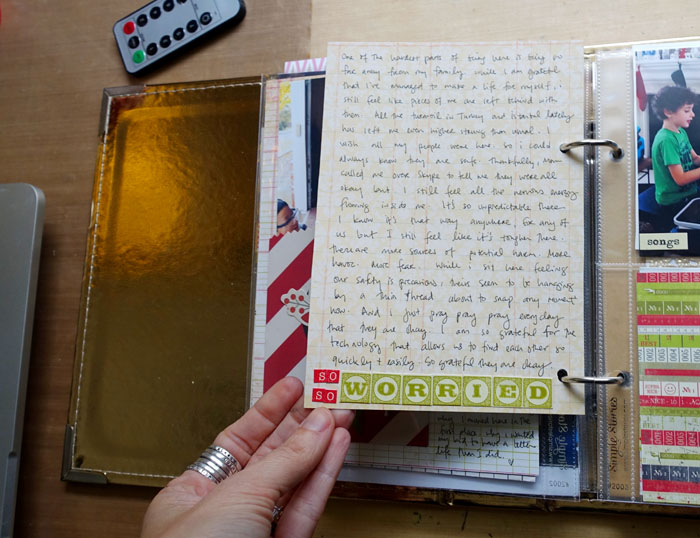 One of the hardest parts of being here is being so
far away from my family. While I am grateful
that I've managed to make a life for myself, i
still feel like pieces of me are left behind with
them. All the turmoil in Turkey and Istanbul lately
has left me even higher strung than usual. I
wish all my people were here. So i could
always know they are safe. Thankfully, Mom
called me over Skype to tell me they were all
okay but I still feel all the nervous energy
flowing inside me. It's so unpredictable there
I know it's that way anywhere for any of
us but I still feel like it's tougher there.
There are more sources of potential harm. More
havoc. More fear. While i sit here feeling
our safety is precarious, theirs seem to be hanging
by a thin thread about to snap any moment
now. And i just pray pray pray everyday
that they are okay. I am so grateful for the
technology that allows us to find each other so
quickly + easily. So grateful they are okay.
SO
SO
WORRIED
why I moved here in the
first place. why I wanted
my kid to have a better
life than I did.
songs
Simple Stories